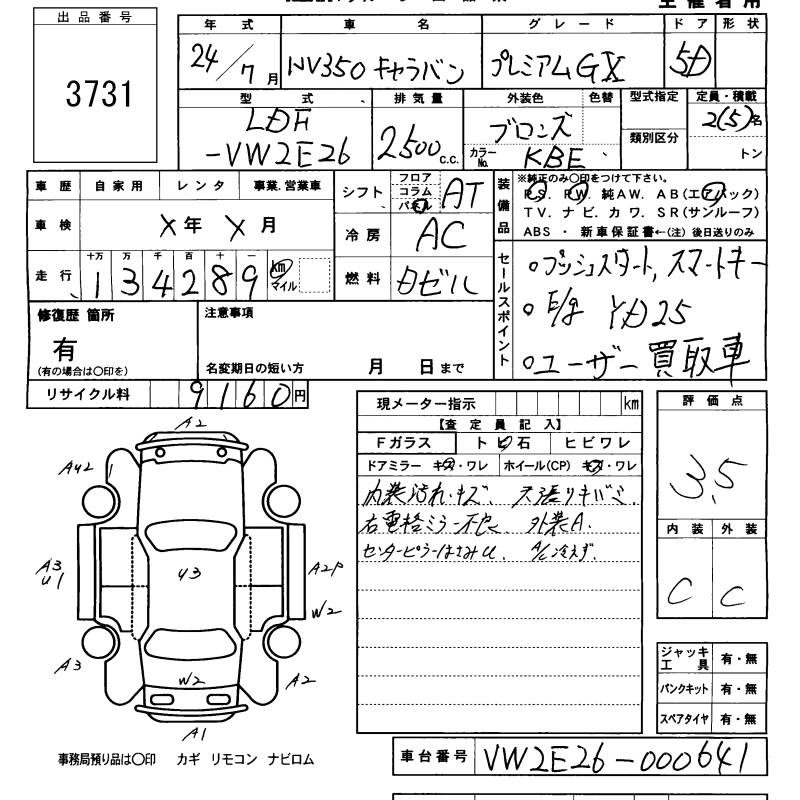 主催者用
出品番号
3731
年式 車名 グレード ドア 形状
24/7月 NV350 キャラバン プレミアムGX 5D
型式 排気量 外装色 色替 型式指定 定員・積載
LDF
-VW2E26 2500c.c. ブロンズ 2(5)名
カラーNo. KBE 類別区分 トン
車歴 自家用 レンタ 事業.営業車
シフト フロア コラム パネル AT
装備品 ※純正のみ〇印をつけて下さい。
P.S. P.W. 純AW. AB(エアバック)
TV. ナビ. カワ. SR(サンルーフ)
ABS ・ 新車保証書←(注) 後日送りのみ
車検 X年 X月
冷房 AC
走行 十万 万 千 百 十 一
134289 km マイル
燃料 Dゼル
セールスポイント
○プッシュスタート, スマートキー
○ E/g YD25
○ユーザー買取車
修復歴 箇所
有
(有の場合は〇印を)
注意事項
名変期日の短い方 月 日まで
リサイクル料 9160円
現メーター指示 km
【査定員記入】
Fガラス トビ石 ヒビワレ
ドアミラー キズ・ワレ ホイール(CP) キズ・ワレ
内装汚れ.キズ. 天張りキバミ
右電格ミラー不良. 外装A.
センターピラーはさみU. A/C冷えず.
評価点
3.5
内装 外装
C C
A2
AU2
A3
U1
U3
A2P
W2
A3
W2
A2
A1
ジャッキ工具 有・無
パンクキット 有・無
スペアタイヤ 有・無
事務局預り品は〇印 カギ リモコン ナビロム
車台番号 VW2E26-000641